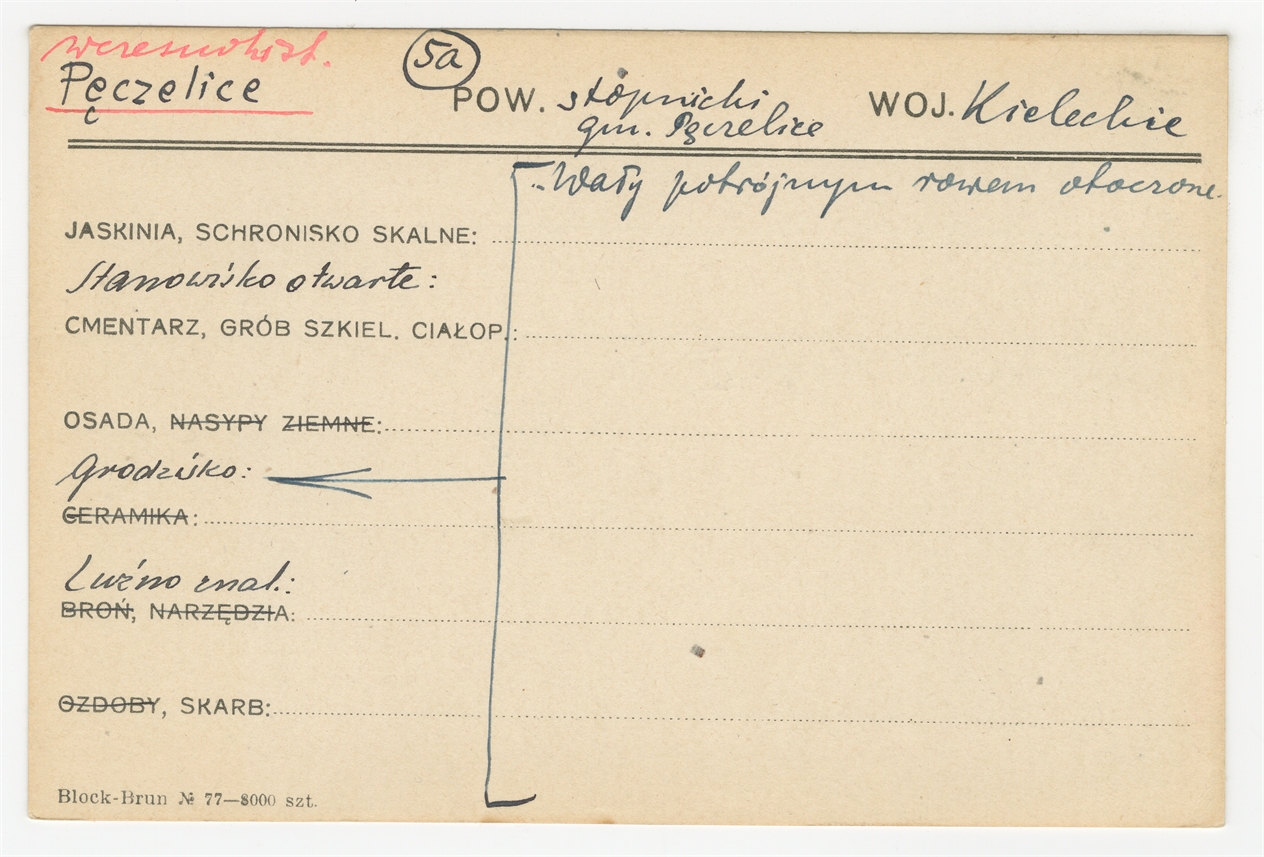 wczesnohist.
Pęczelice
5a
POW. stopnicki
gm. Pęczelice
WOJ. Kieleckie
"Wały potrójnym rowem otoczone.
JASKINIA, SCHRONISKO SKALNE:
Stanowisko otwarte:
CMENTARZ, GRÓB SZKIEL. CIAŁOP.:
OSADA, NASYPY ZIEMNE:
Grodzisko:
CERAMIKA:
Luźno znal.:
BROŃ, NARZĘDZIA:
OZDOBY, SKARB:
Block-Brun № 77—8000 szt.